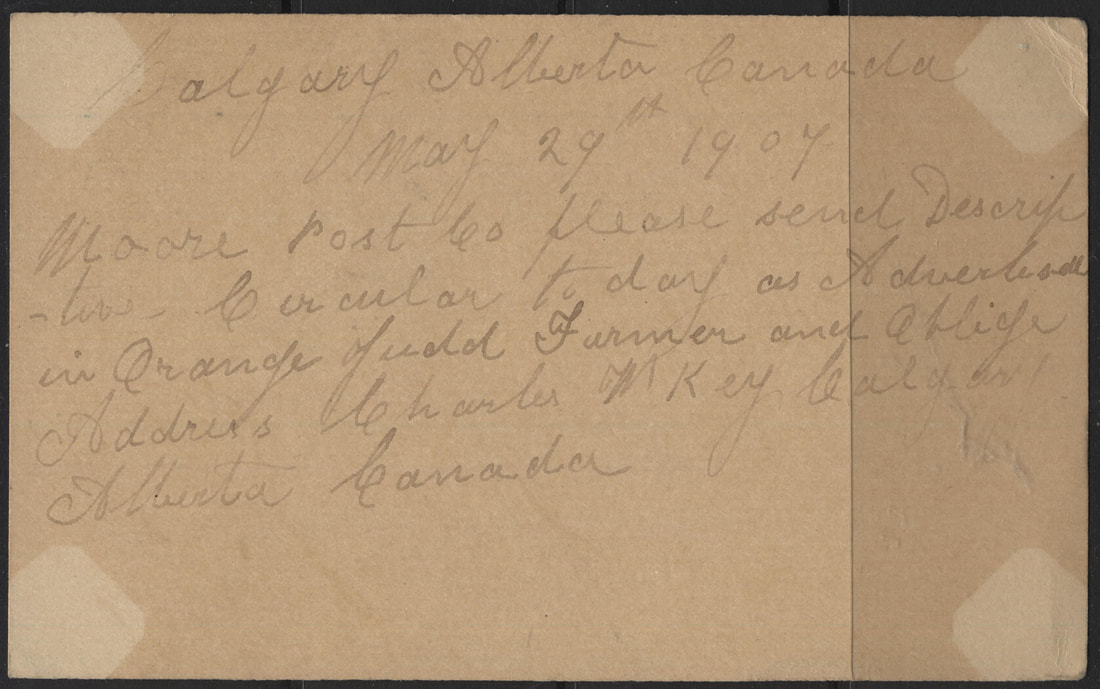 Calgary Alberta Canada
May 29th 1907
Moore Post Co please send Descrip
-tive- Circular to day as Advertised
in Orange Judd Farmer and Oblige
Address Charles W Key Calgary
Alberta Canada